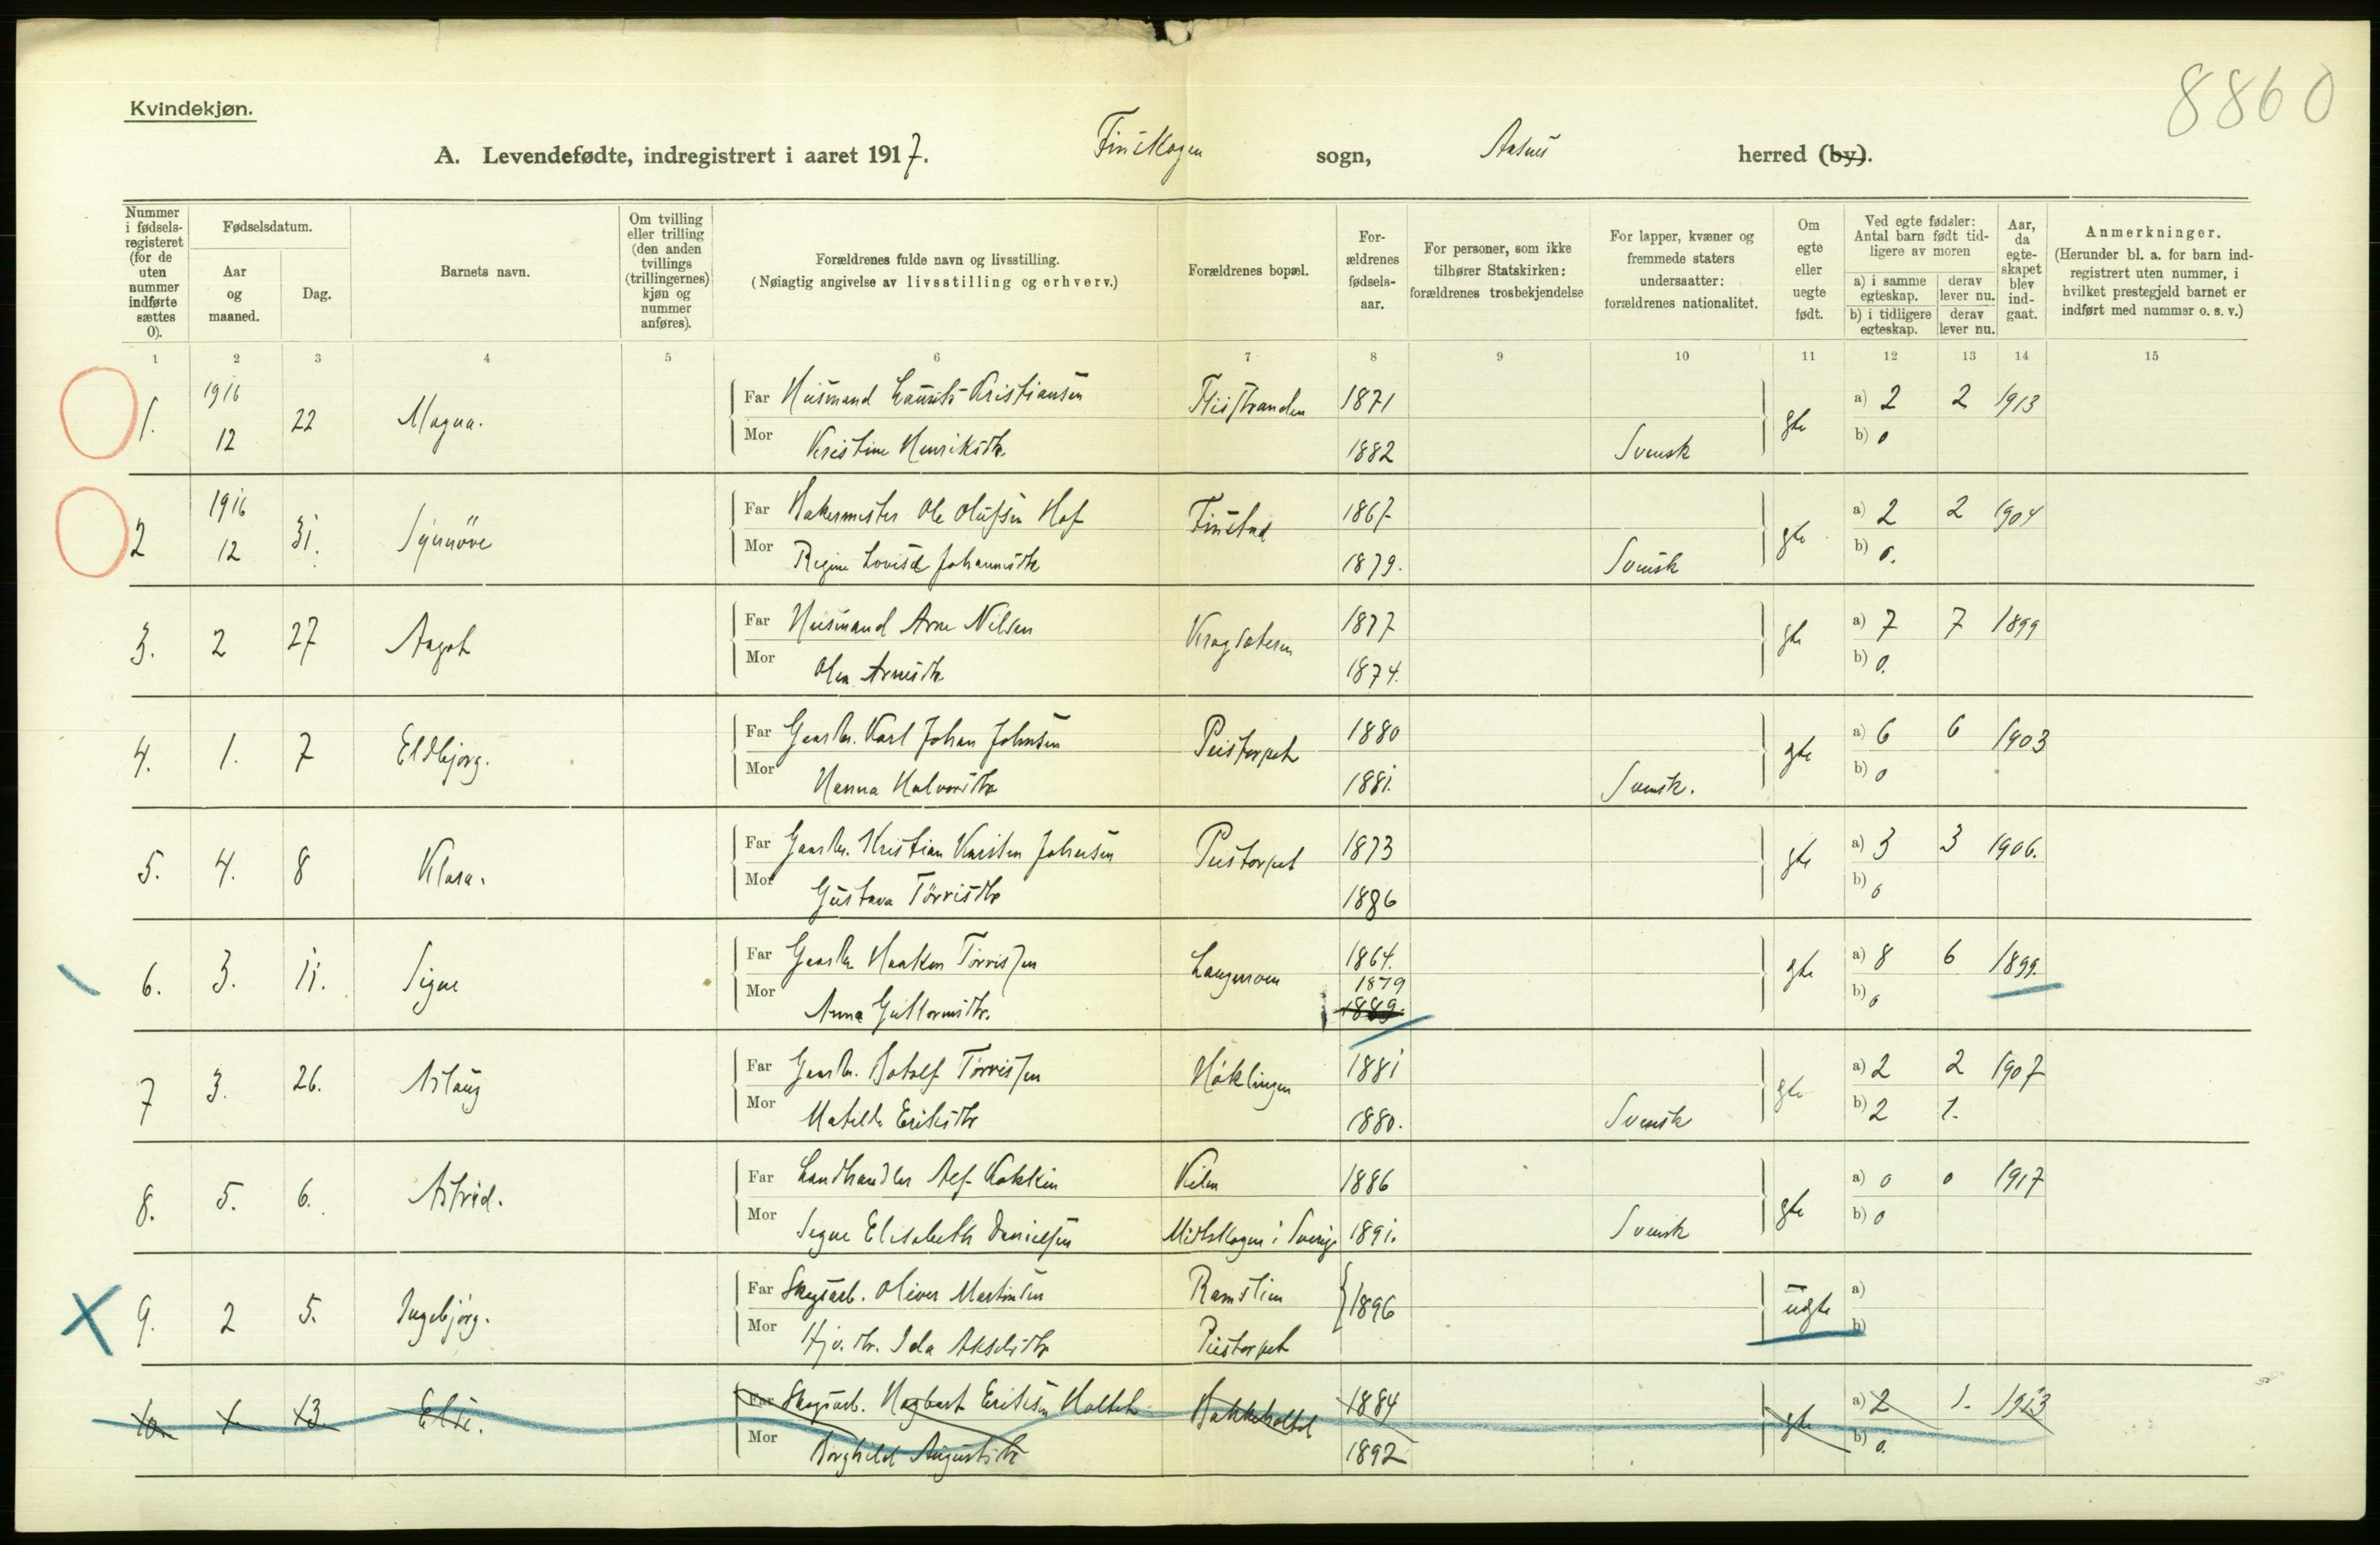 8860
Kvindekjøn.
A. Levendefødte, indregistrert i aaret 1917. Finskogen sogn, Aasnes herred (by).
Nummer i fødselsregisteret (for de uten nummer indførte sættes 0).
Fødselsdatum.
Aar og maaned.
Dag.
Barnets navn.
Om tvilling eller trilling (den anden tvillings (trillingernes) kjøn og nummer anføres).
Forældrenes fulde navn og livsstilling.
(Nøiagtig angivelse av livsstilling og erhverv.)
Forældrenes bopæl.
Forældrenes fødselsaar.
For personer, som ikke tilhører Statskirken: forældrenes trosbekjendelse
For lapper, kvæner og fremmede staters undersaatter: forældrenes nationalitet.
Om egte eller uegte født.
Ved egte fødsler: Antal barn født tidligere av moren
a) i samme egteskap. derav lever nu.
b) i tidligere egteskap. derav lever nu.
Aar, da egteskapet blev indgaat.
Anmerkninger.
(Herunder bl. a. for barn indregistrert uten nummer, i hvilket prestegjeld barnet er indført med nummer o. s. v.)
1 2 3 4 5 6 7 8 9 10 11 12 13 14 15
1. 1916 12 22 Magna. Far Husmand Laurits Kristiansen 1871 gte a) 2 2 1913
Mor Kristine Henriksdtr. 1882 Svensk b) 0
2 1916 12 31. Synnöve Far Bakermester Ole Olufsen Hof Finstad 1867 gte a) 2 2 1904
Mor Regine Lovise Johannesdtr 1879. Svensk b) 0.
3. 2 27 Aagot Far Husmand Arne Nilsen 1877 gte a) 7 7 1899
Mor Olea Arnesdtr 1874. b) 0.
4. 1. 7 Eldbjørg. Far Gaardbr. Karl Johan Johnsen Peistorpet 1880 gte a) 6 6 1903
Mor Hanna Halvorsdtr 1881. Svensk. b) 0
5. 4. 8 Klara. Far Gaardbr. Kristian Karsten Johnsen Peistorpet 1873 gte a) 3 3 1906.
Mor Gustava Törrisdtr 1886 b) 0
6. 3. 11. Signe Far Gaardbr Haaken Törrissen 1864. gte a) 8 6 1899.
Mor Anna Guttormsdtr. 1879 1889. b) 0
7 3. 26. Aslaug Far Gaardbr. Botolf Törrissen Høklingen 1881 gte a) 2 2 1907
Mor Matilde Eriksdtr 1880. Svensk b) 2 1.
8. 5. 6. Astrid. Far Landhandler Alf Kokkin 1886 gte a) 0 0 1917
Mor Signe Elisabeth Danielsen Midtskogen i Sverige 1891. Svensk b) 0
9. 2 5. Ingebjørg. Far Skogsarb. Oliver Martinsen 1896 ugte a)
Mor Hjv. dtr. Ida Akselsdtr Peistorpet b)
10 1. 13. Else. Far Skogsarb. Hagbart Eriksen Holtet 1884 gte a) 2 1. 1913
Mor Borghild Augustsdtr 1892 b) 0.